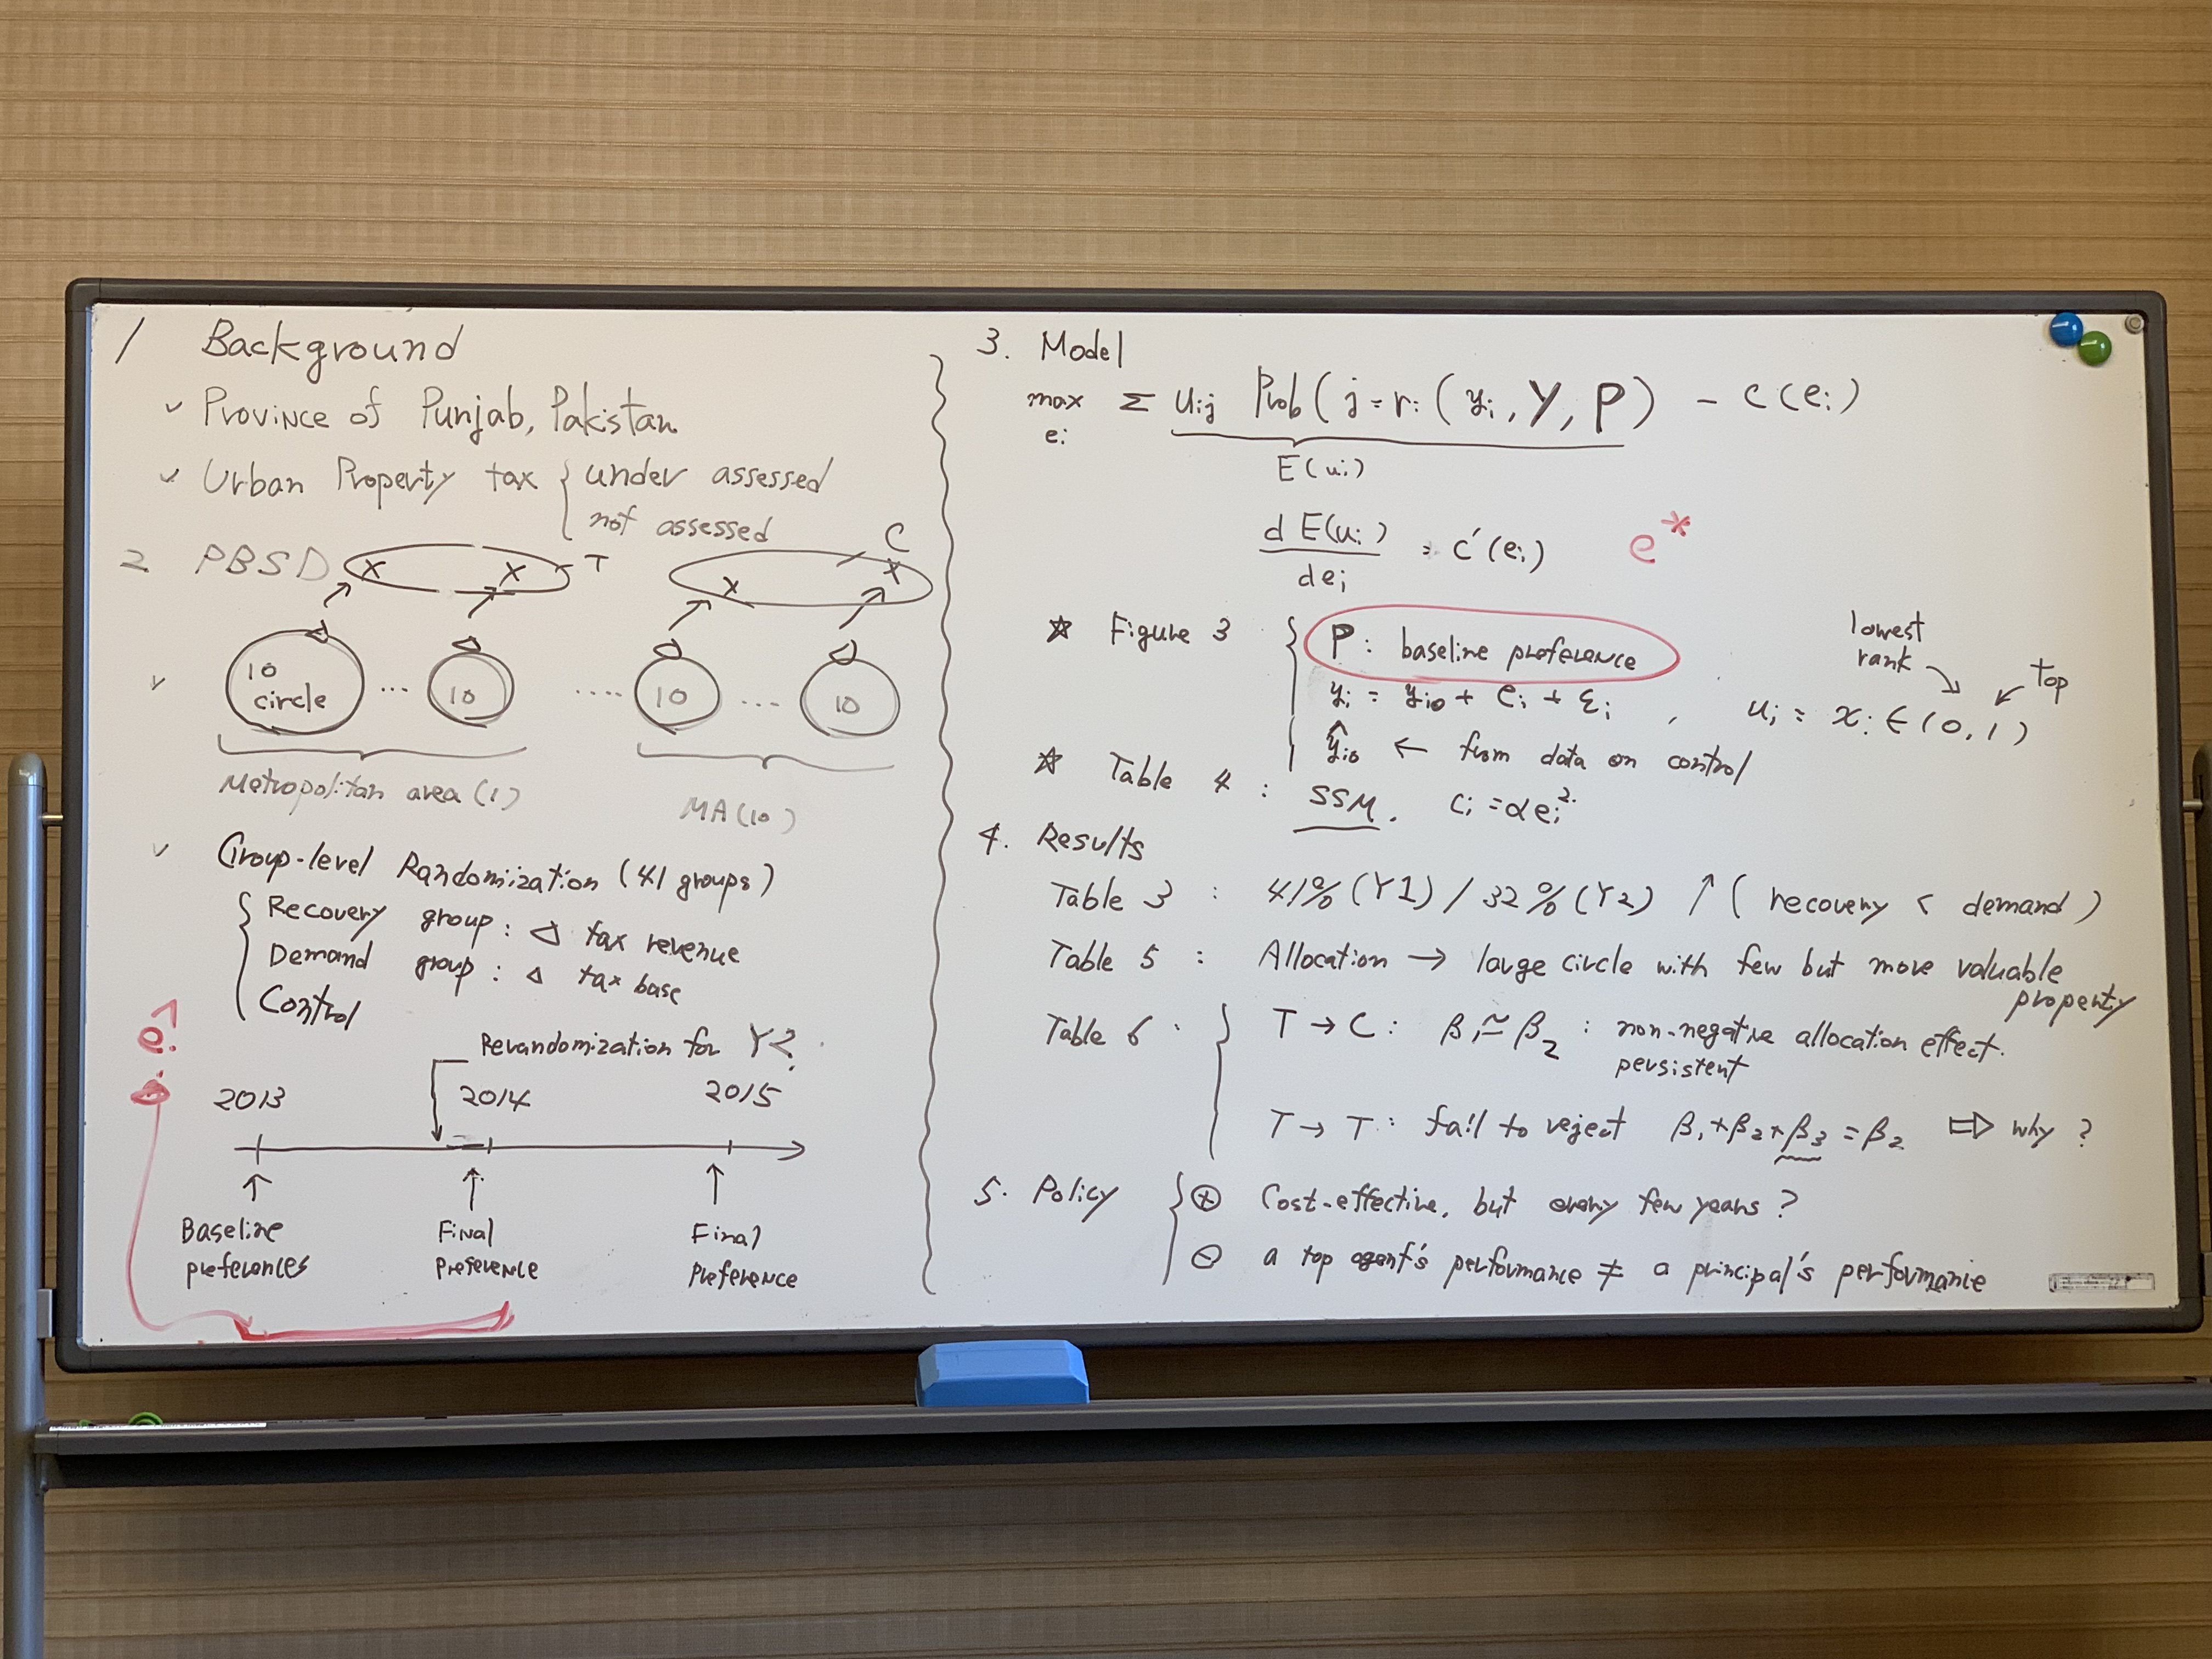 1 Background
✓ Province of Punjab, Pakistan
✓ Urban Property tax { under assessed
not assessed
2 PBSD
x x T x x C
✓ 10 circle ... 10 .... 10 ... 10
Metropolitan area (1) MA (10)
✓ Group-level Randomization (41 groups)
{ Recovery group : △ tax revenue
Demand group : △ tax base
Control
Rerandomization for Y2
2013 2014 2015
Baseline preferences
Final Preference
Final Preference
3. Model
max Σ uij Prob( j = ri ( yi, Y, P ) - c(ei)
ei
E(ui)
d E(ui) / dei = c′(ei) e*
☆ Figure 3 { P : baseline preference
lowest rank ↘ ↙ top
yi = yi0 + ei + εi , ui = xi ∈ (0, 1)
ŷi0 ← from data on control
☆ Table 4 : SSM. ci = αei²
4. Results
Table 3 : 41% (Y1) / 32% (Y2) ↑ ( recovery < demand )
Table 5 : Allocation → large circle with few but more valuable property
Table 6 { T → C : β1 ≅ β2 : non-negative allocation effect.
persistent
T → T : fail to reject β1 + β2 + β3 = β2 ⇒ why ?
5. Policy { ⊕ Cost-effective, but every few years ?
⊖ a top agent's performance ≠ a principal's performance